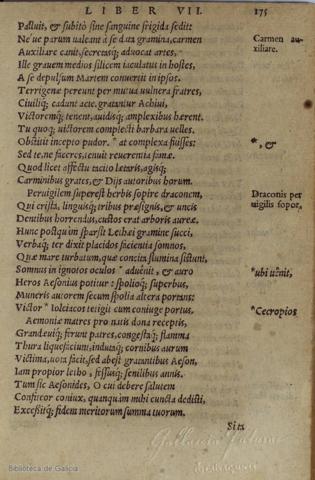 LIBER VII. 175
Palluit, & subitò sine sanguine frigida sedit:
Ne'ue parum ualeant à se data gramina, carmen
Carmen au
Auxiliare canit, secretasq; aduocat artes.
xiliare.
Ille grauem medios silicem iaculatus in hostes,
A se depulsum Martem conuertit in ipsos.
Terrigenæ pereunt per mutua uulnera fratres,
Ciuiliq; cadunt acie. gratantur Achiui,
Victoremq; tenent, auidisq; amplexibus hærent.
Tu quoq; uictorem complecti barbara uelles.
Obstitit incepto pudor. * at complexa fuisses:
*, &
Sed te, ne faceres, tenuit reuerentia famæ.
Quod licet affectu tacito lætaris, agisq;
Carminibus grates, & Dijs autoribus horum.
Peruigilem superest herbis sopire draconem,
Draconis per
Qui crista, linguisq; tribus præsignis, & uncis
uigilis sopor,
Dentibus horrendus, custos erat arboris aureæ.
Hunc postquàm sparsit Lethæi gramine succi,
Verbaq; ter dixit placidos facientia somnos,
Quæ mare turbatum, quæ concita flumina sistunt,
Somnus in ignotos oculos * aduênit, & auro
*ubi uênit,
Heros Aesonius potitur: spolioq; superbus,
Muneris autorem secum spolia altera portans:
Victor * Iolciacos tetigit cum coniuge portus,
*Cecropios
Aemoniæ matres pro natis dona receptis,
Grandæuiq; ferunt patres, congestaq; flamma
Thura liquefaciunt, indutaq; cornibus aurum
Victima, uota facit, sed abest gratantibus Aeson,
Iam propior letho, fessusq; senilibus annis.
Tum sic Aesonides, O cui debere salutem
Confiteor coniux, quanquàm mihi cuncta dedisti,
Excessitq; fidem meritorum summa tuorum.
Si ta
Biblioteca de Galicia